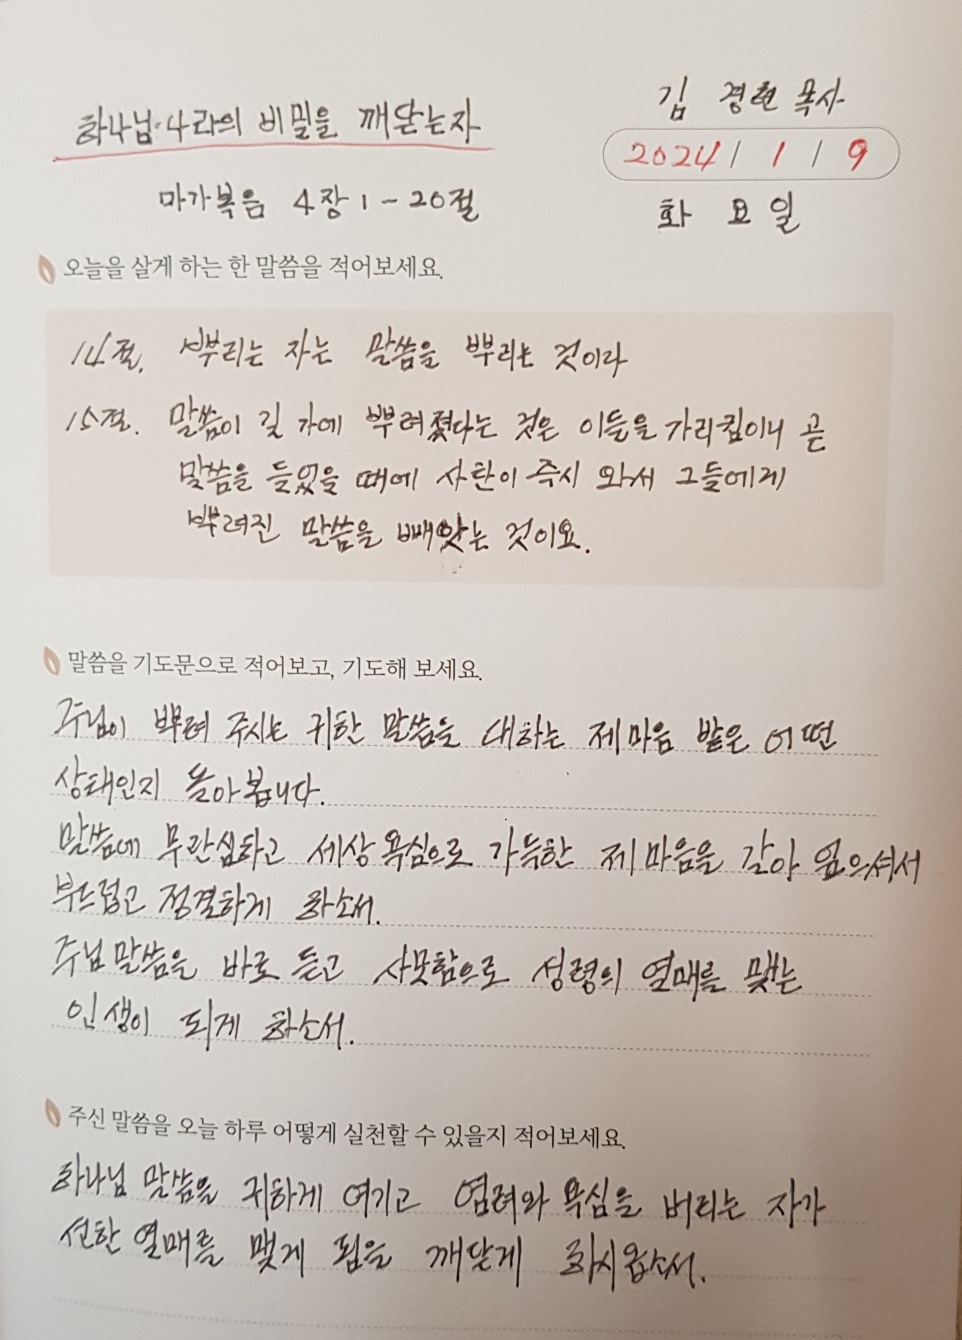 하나님 나라의 비밀을 깨닫는자
김 경현 목사
2024 / 1 / 9
마가복음 4장 1 - 20절
화 요일
오늘을 살게 하는 한 말씀을 적어보세요.
14절. 뿌리는 자는 말씀을 뿌리는 것이라
15절. 말씀이 길 가에 뿌려졌다는 것은 이들을 가리킴이니 곧
말씀을 들었을 때에 사탄이 즉시 와서 그들에게
뿌려진 말씀을 빼앗는 것이요.
말씀을 기도문으로 적어보고, 기도해 보세요.
주님이 뿌려 주시는 귀한 말씀을 대하는 제 마음 밭은 어떤
상태인지 돌아봅니다.
말씀에 무관심하고 세상 욕심으로 가득한 제 마음을 갈아 엎으셔서
부드럽고 정결하게 하소서.
주님 말씀을 바로 듣고 사모함으로 성령의 열매를 맺는
인생이 되게 하소서.
주신 말씀을 오늘 하루 어떻게 실천할 수 있을지 적어보세요.
하나님 말씀을 귀하게 여기고 염려와 욕심을 버리는 자가
선한 열매를 맺게 됨을 깨닫게 하시옵소서.